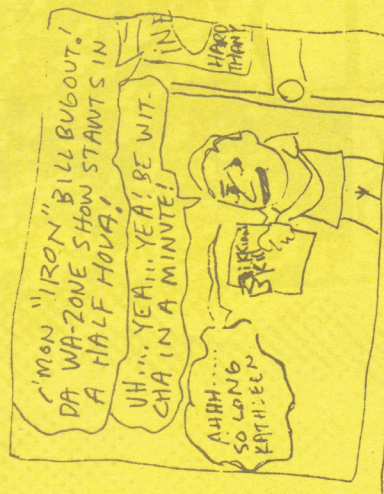 C'MON "IRON" BILL BUGOUT!
DA WA-ZONE SHOW STANTS IN
A HALF HOVA!
UH... YEA... YEA! BE WIT-
CHA IN A MINUTE!
AHAH.....
SO LONG
KATHLEEN
HARD
THANY